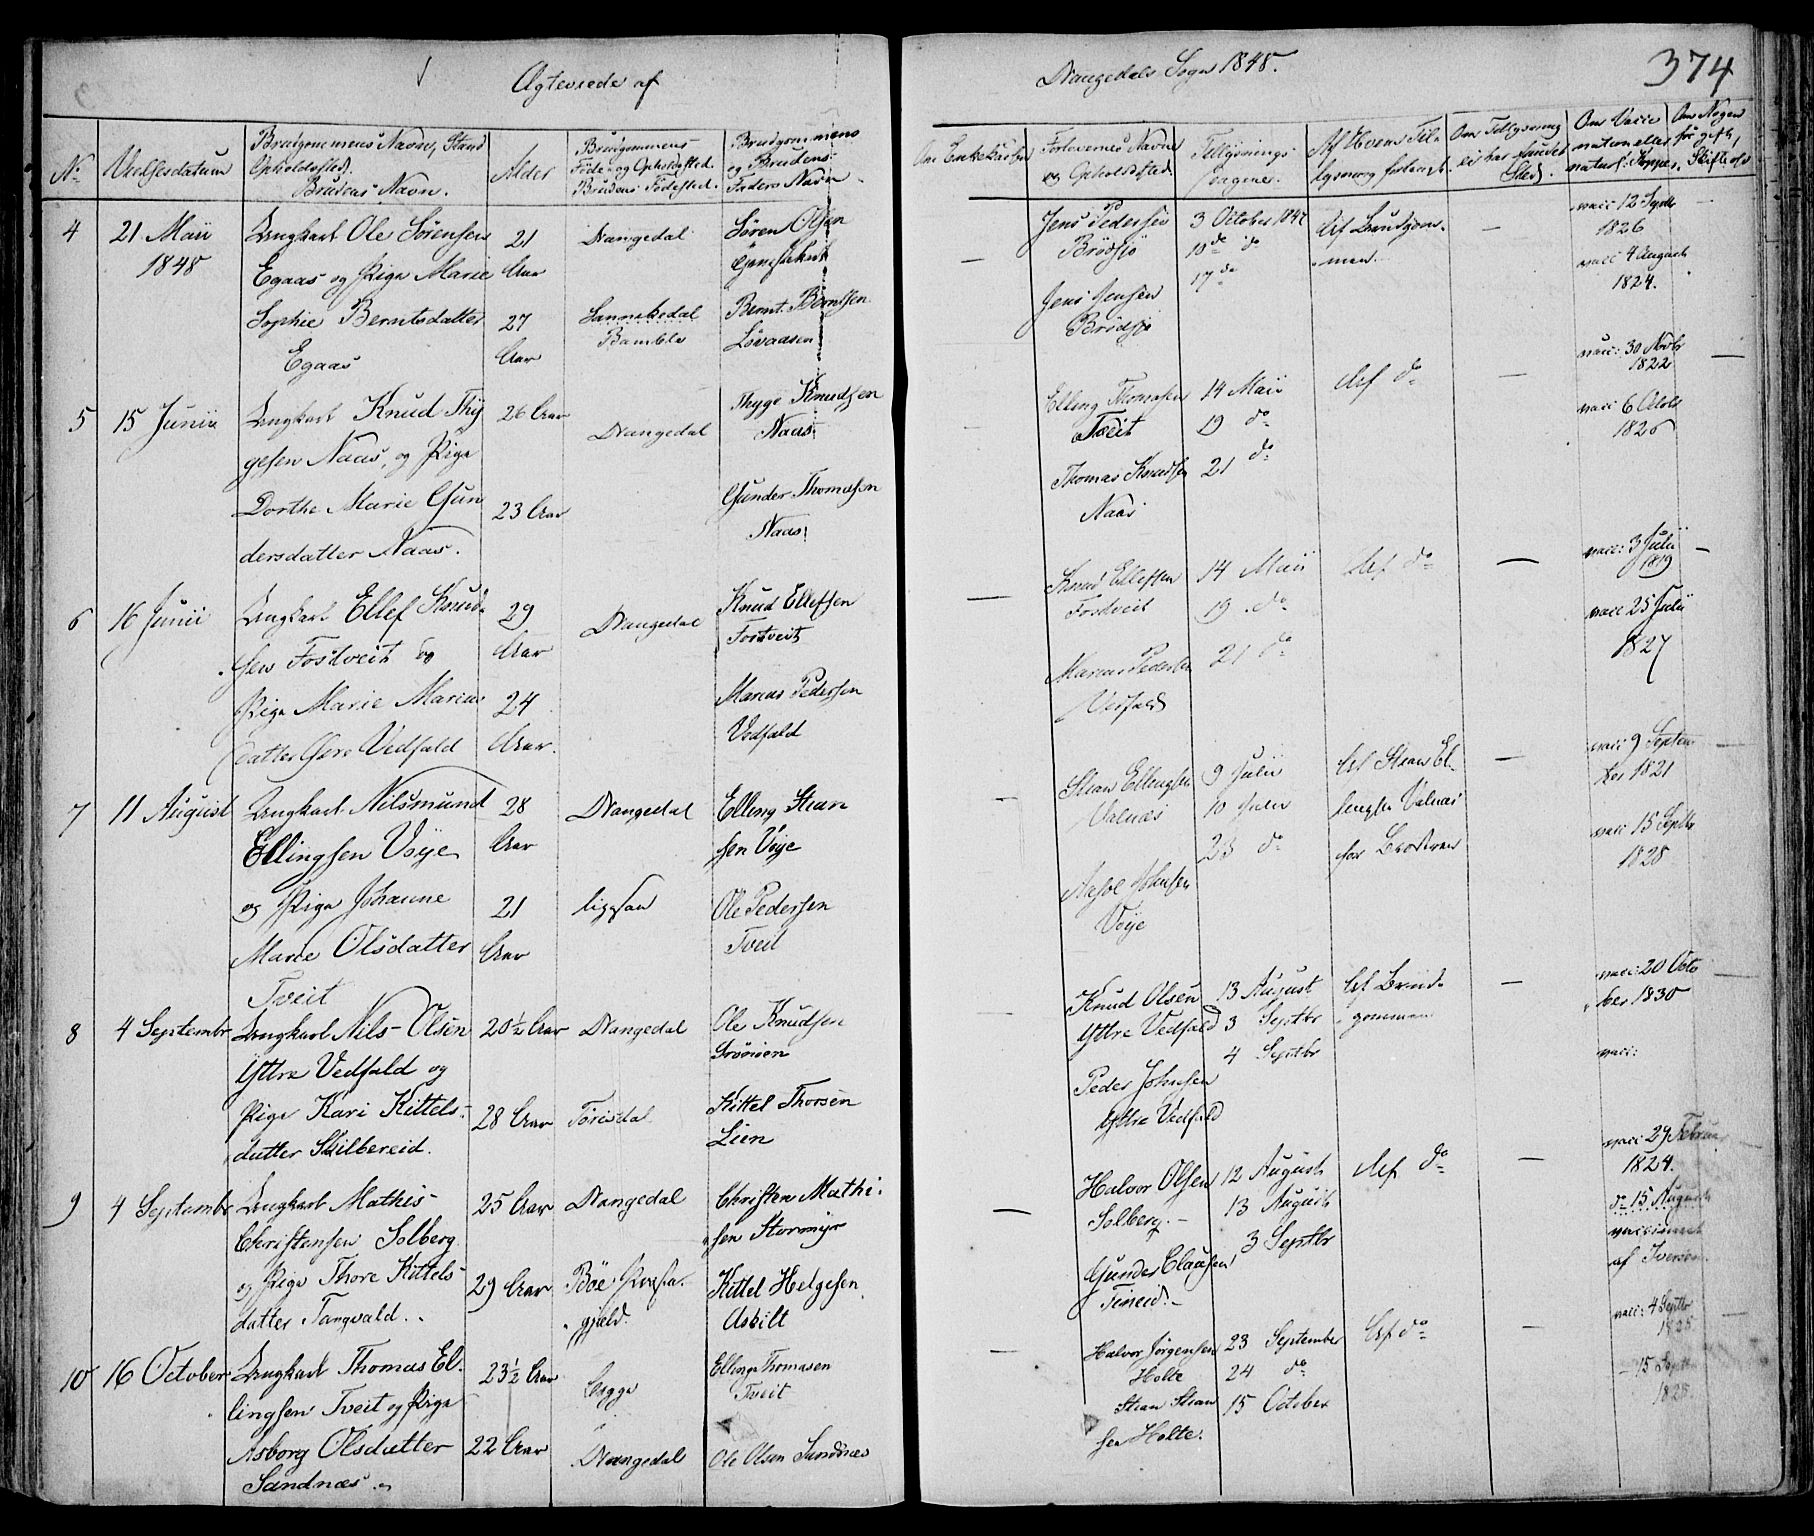 Ægteviede af
Drangedals Sogn 1848.
374
No
Vielsesdatum
Brudgommens Navn, Stand
Opholdssted.
Brudens Navn.
Alder
Brudgommens
Føde- og Opholdssted.
Brudens Fødested.
Brudgommens
og Brudens
Faders Navn
Om Enke
Forlovernes Navne
og Opholdssted.
Tillysnings-
dagene.
Af hvem Til-
lysning forlangt.
Om Tillysning
ei har fundet
Sted.
Om Vacci-
nation eller
naturl: Kopper.
Om Nogen
før gift,
Skifte
4
21 Maii
1848
Ungkarl Ole Sørensen
Egaas og Pige Marie
Sophie Berntsdatter
Egaas
21
Aar
27
Aar
Drangedal
Sannikedal
Bamble
Søren Olsen
Bernt Berntsen
Lovaasen
Jens Pedersen
Brødsjø
Jens Jensen
Brødsjø
3 October 1847
10 do do
17 do
Af Brudgom-
men
vacc 12 Septb
1826
vacc 4 August
1824.
5
15 Junii
Ungkarl Knud Thy
gesen Naas, og Pige
Dorthe Marie Gun
dersdatter Naas.
26 Aar
23 Aar
Drangedal
Thyge Knudsen
Naas
Gunder Thomasen
Naas
Elling Thomasen
Tveit
Thomas Knudsen
Naas
14 Maii
19 do
21 do
Af do
vacc: 30 Novbr
1822
vacc 6 Octob
1826
6
16 Junii
Ungkarl Ellef Knud-
sen Fostveit og
Pige Marie Marcus
datter Øvre Vedfald
29
Aar
24
Aar.
Drangedal
Knud Ellefsen
Fostveit
Marcus Pedersen
Vedfald
Knud Ellefsen
Fostveit
Marcus Pedersen
Vedfald
14 Maii
19 do
21 do
Af do
vacc: 3 Julii
1819
vacc 25 Julii
1827
7
11 August
Ungkarl Nilsmund
Ellingsen Voje
og Pige Johanne
Marie Olsdatter
Tveit
28
Aar
21
Aar
Drangedal
ligesaa
Elling Stian
sen Voje
Ole Pedersen
Tveit
Stian Ellingsen
Valnæs
Aasol Johnsen
Voje
9 Julii
10 Julii
23 do
Af Stian El-
lingsen Valnæs
for Broderen
vacc 9 Septem
ber 1821
vacc 15 Septb
1828
8
4 Septembr
Ungkarl Nils Olsen
Yttre Vedfald og
Pige Kari Kittels-
datter Skilbereid.
20½ Aar
28 Aar
Drangedal
Torisdal
Ole Knudsen
Kittel Thorsen
Lien
Knud Olsen
Yttre Vedfald
Peder Johnsen
Yttre Vedfald
13 August
3 Septbr
4 Septbr
Af Brud-
gommen
vacc: 20 Octo
ber 1830
vacc:
9
4 Septembr
Ungkarl Mathis
Christensen Solberg
og Pige Thore Kittels-
datter Tangvald.
25 Aar
29 Aar
Drangedal
Böe Præste-
gjeld.
Christen Mathi-
sen Stormyr
Kittel Helgesen
Asbilt
Halvor Olsen
Solberg.
Gunder Clausen
Tineid.
12 August
13 August
3 Septbr
Af do
vacc 29 Februar
1824.
do 15 August
vaccineret
af Iversen.
10
16 October
Ungkarl Thomas El-
lingsen Tveit og Pige
Asborg Olsdatter
Sandnæs
23½ Aar
22 Aar
Drangedal
Elling Thomasen
Tveit
Ole Olsen Sandnæs
Halvor Jørgensen
Holte
Stian Stian
sen Holte.
23 September
24 do
15 October
Af do
vacc: 4 Septbr
1825
15 Septbr
1828.